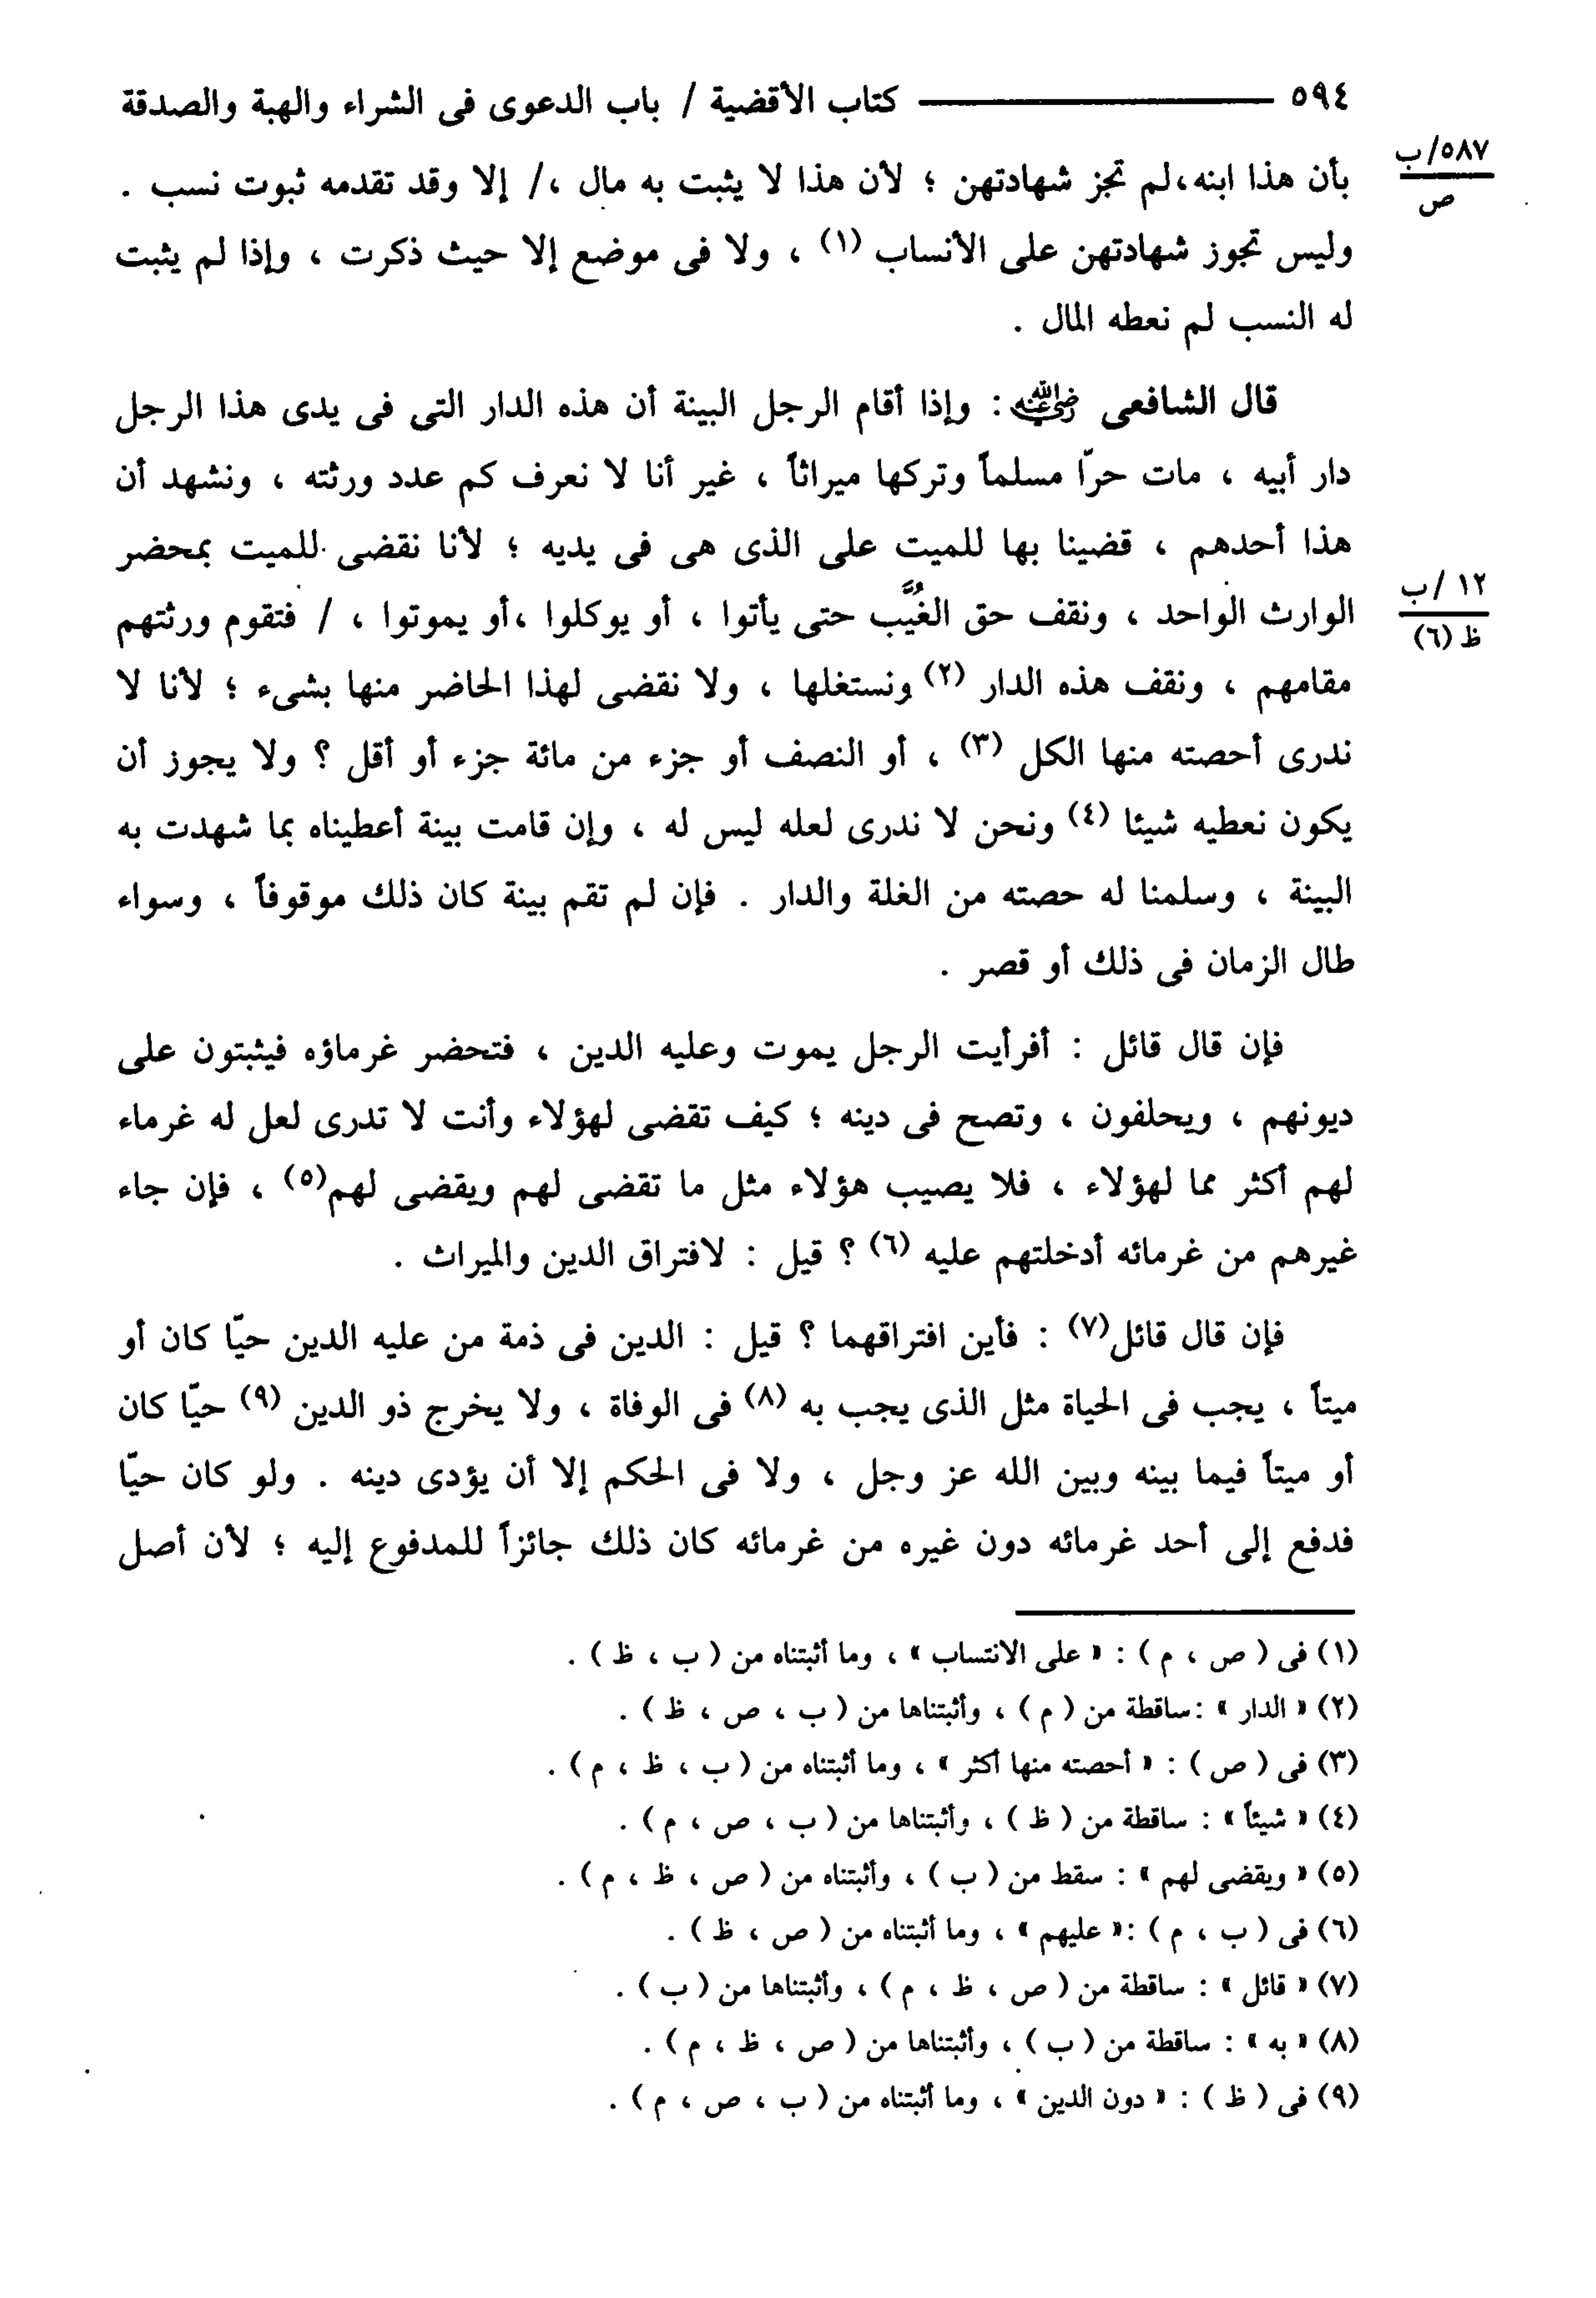 ٥٩٤ ــــــــــــــــ كتاب الأقضية / باب الدعوى فى الشراء والهبة والصدقة
٥٨٧/ب
ص
بأن هذا ابنه،لم تجز شهادتهن ؛ لأن هذا لا يثبت به مال ،/ إلا وقد تقدمه ثبوت نسب .
وليس تجوز شهادتهن على الأنساب (١) ، ولا فى موضع إلا حيث ذكرت ، وإذا لم يثبت
له النسب لم نعطه المال .
قال الشافعى رضي الله عنه : وإذا أقام الرجل البينة أن هذه الدار التى فى يدى هذا الرجل
دار أبيه ، مات حرّا مسلماً وتركها ميراثاً ، غير أنا لا نعرف كم عدد ورثته ، ونشهد أن
هذا أحدهم ، قضينا بها للميت على الذى هى فى يديه ؛ لأنا نقضى للميت بمحضر
١٢ /ب
ظ (٦)
الوارث الواحد ، ونقف حق الغُيَّب حتى يأتوا ، أو يوكلوا ،أو يموتوا ، / فتقوم ورثتهم
مقامهم ، ونقف هذه الدار (٢) ونستغلها ، ولا نقضى لهذا الحاضر منها بشىء ؛ لأنا لا
ندرى أحصته منها الكل (٣) ، أو النصف أو جزء من مائة جزء أو أقل ؟ ولا يجوز أن
يكون نعطيه شيئا (٤) ونحن لا ندرى لعله ليس له ، وإن قامت بينة أعطيناه بما شهدت به
البينة ، وسلمنا له حصته من الغلة والدار . فإن لم تقم بينة كان ذلك موقوفاً ، وسواء
طال الزمان فى ذلك أو قصر .
فإن قال قائل : أفرأيت الرجل يموت وعليه الدين ، فتحضر غرماؤه فيثبتون على
ديونهم ، ويحلفون ، وتصح فى دينه ؛ كيف تقضى لهؤلاء وأنت لا تدرى لعل له غرماء
لهم أكثر مما لهؤلاء ، فلا يصيب هؤلاء مثل ما تقضى لهم ويقضى لهم(٥) ، فإن جاء
غيرهم من غرمائه أدخلتهم عليه (٦) ؟ قيل : لافتراق الدين والميراث .
فإن قال قائل(٧) : فأين افتراقهما ؟ قيل : الدين فى ذمة من عليه الدين حيّا كان أو
ميتاً ، يجب فى الحياة مثل الذى يجب به (٨) فى الوفاة ، ولا يخرج ذو الدين (٩) حيّا كان
أو ميتاً فيما بينه وبين الله عز وجل ، ولا فى الحكم إلا أن يؤدى دينه . ولو كان حيّا
فدفع إلى أحد غرمائه دون غيره من غرمائه كان ذلك جائزاً للمدفوع إليه ؛ لأن أصل
(١) فى ( ص ، م ) : « على الانتساب » ، وما أثبتناه من ( ب ، ظ ) .
(٢) « الدار » :ساقطة من ( م ) ، وأثبتناها من ( ب ، ص ، ظ ) .
(٣) فى ( ص ) : « أحصته منها أكثر » ، وما أثبتناه من ( ب ، ظ ، م ) .
(٤) « شيئاً » : ساقطة من ( ظ ) ، وأثبتناها من ( ب ، ص ، م ) .
(٥) « ويقضى لهم » : سقط من ( ب ) ، وأثبتناه من ( ص ، ظ ، م ) .
(٦) فى ( ب ، م ) :« عليهم » ، وما أثبتناه من ( ص ، ظ ) .
(٧) « قائل » : ساقطة من ( ص ، ظ ، م ) ، وأثبتناها من ( ب ) .
(٨) « به » : ساقطة من ( ب ) ، وأثبتناها من ( ص ، ظ ، م ) .
(٩) فى ( ظ ) : « دون الدين » ، وما أثبتناه من ( ب ، ص ، م ) .